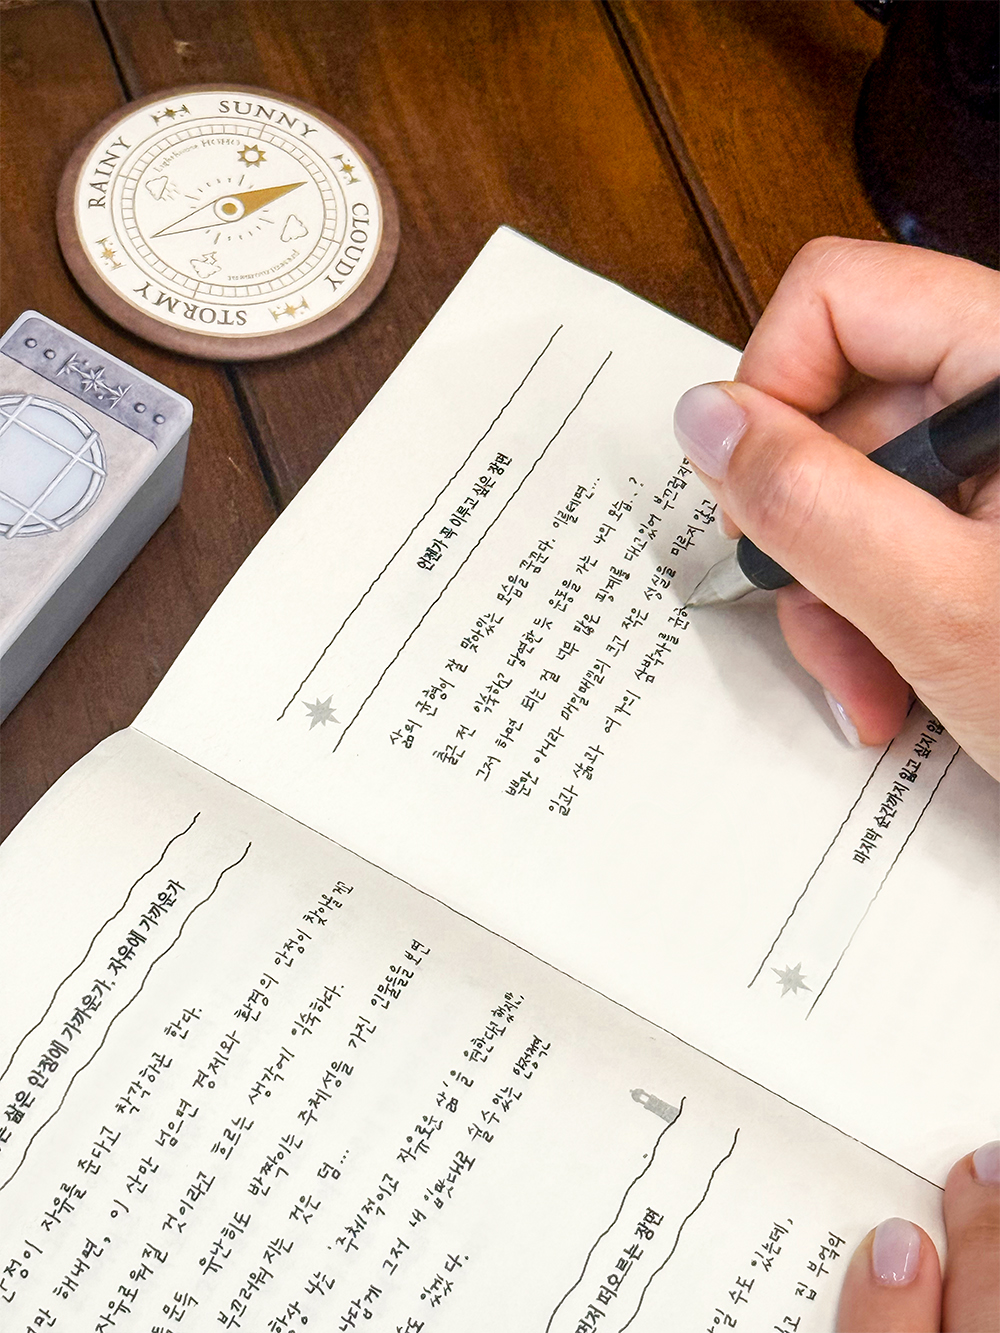 SUNNY
CLOUDY
STORMY
RAINY
Lighthouse HOHO
presentiment
언젠가 꼭 이루고 싶은 장면
삶의 균형이 잘 맞아있는 모습을 꿈꾼다. 이를테면...
출근 전 익숙하고 당연한 듯 운동을 가는 나의 모습..?
그저 하면 되는 걸 너무 많은 핑계를 대고있어 부끄럽지만
뿐만 아니라 매일매일의 크고 작은 성실을 미루지 않고
일과 삶과 여가의 삼박자를
마지막 순간까지 잃고 싶지
삶은 안정에 가까운가, 자유에 가까운가
안정이 자유를 준다고 착각하곤 한다.
만 해내면, 이 산만 넘으면 경제와 환경의 안정이 찾아올
자유로워질 것이라고 흐르는 생각에 익숙하다.
문득 유난히도 반짝이는 주체성을 가진 인물들을 보면
부끄러워지는 것은 덤...
항상 나는 '주체적이고 자유로운 삶'을 원한다고 했지만,
나답게 그저 내 입맛대로 쉴 수 있는
도 있겠다.
먼저 떠오르는 장면
일 수도 있는데,
고 집 부엌의